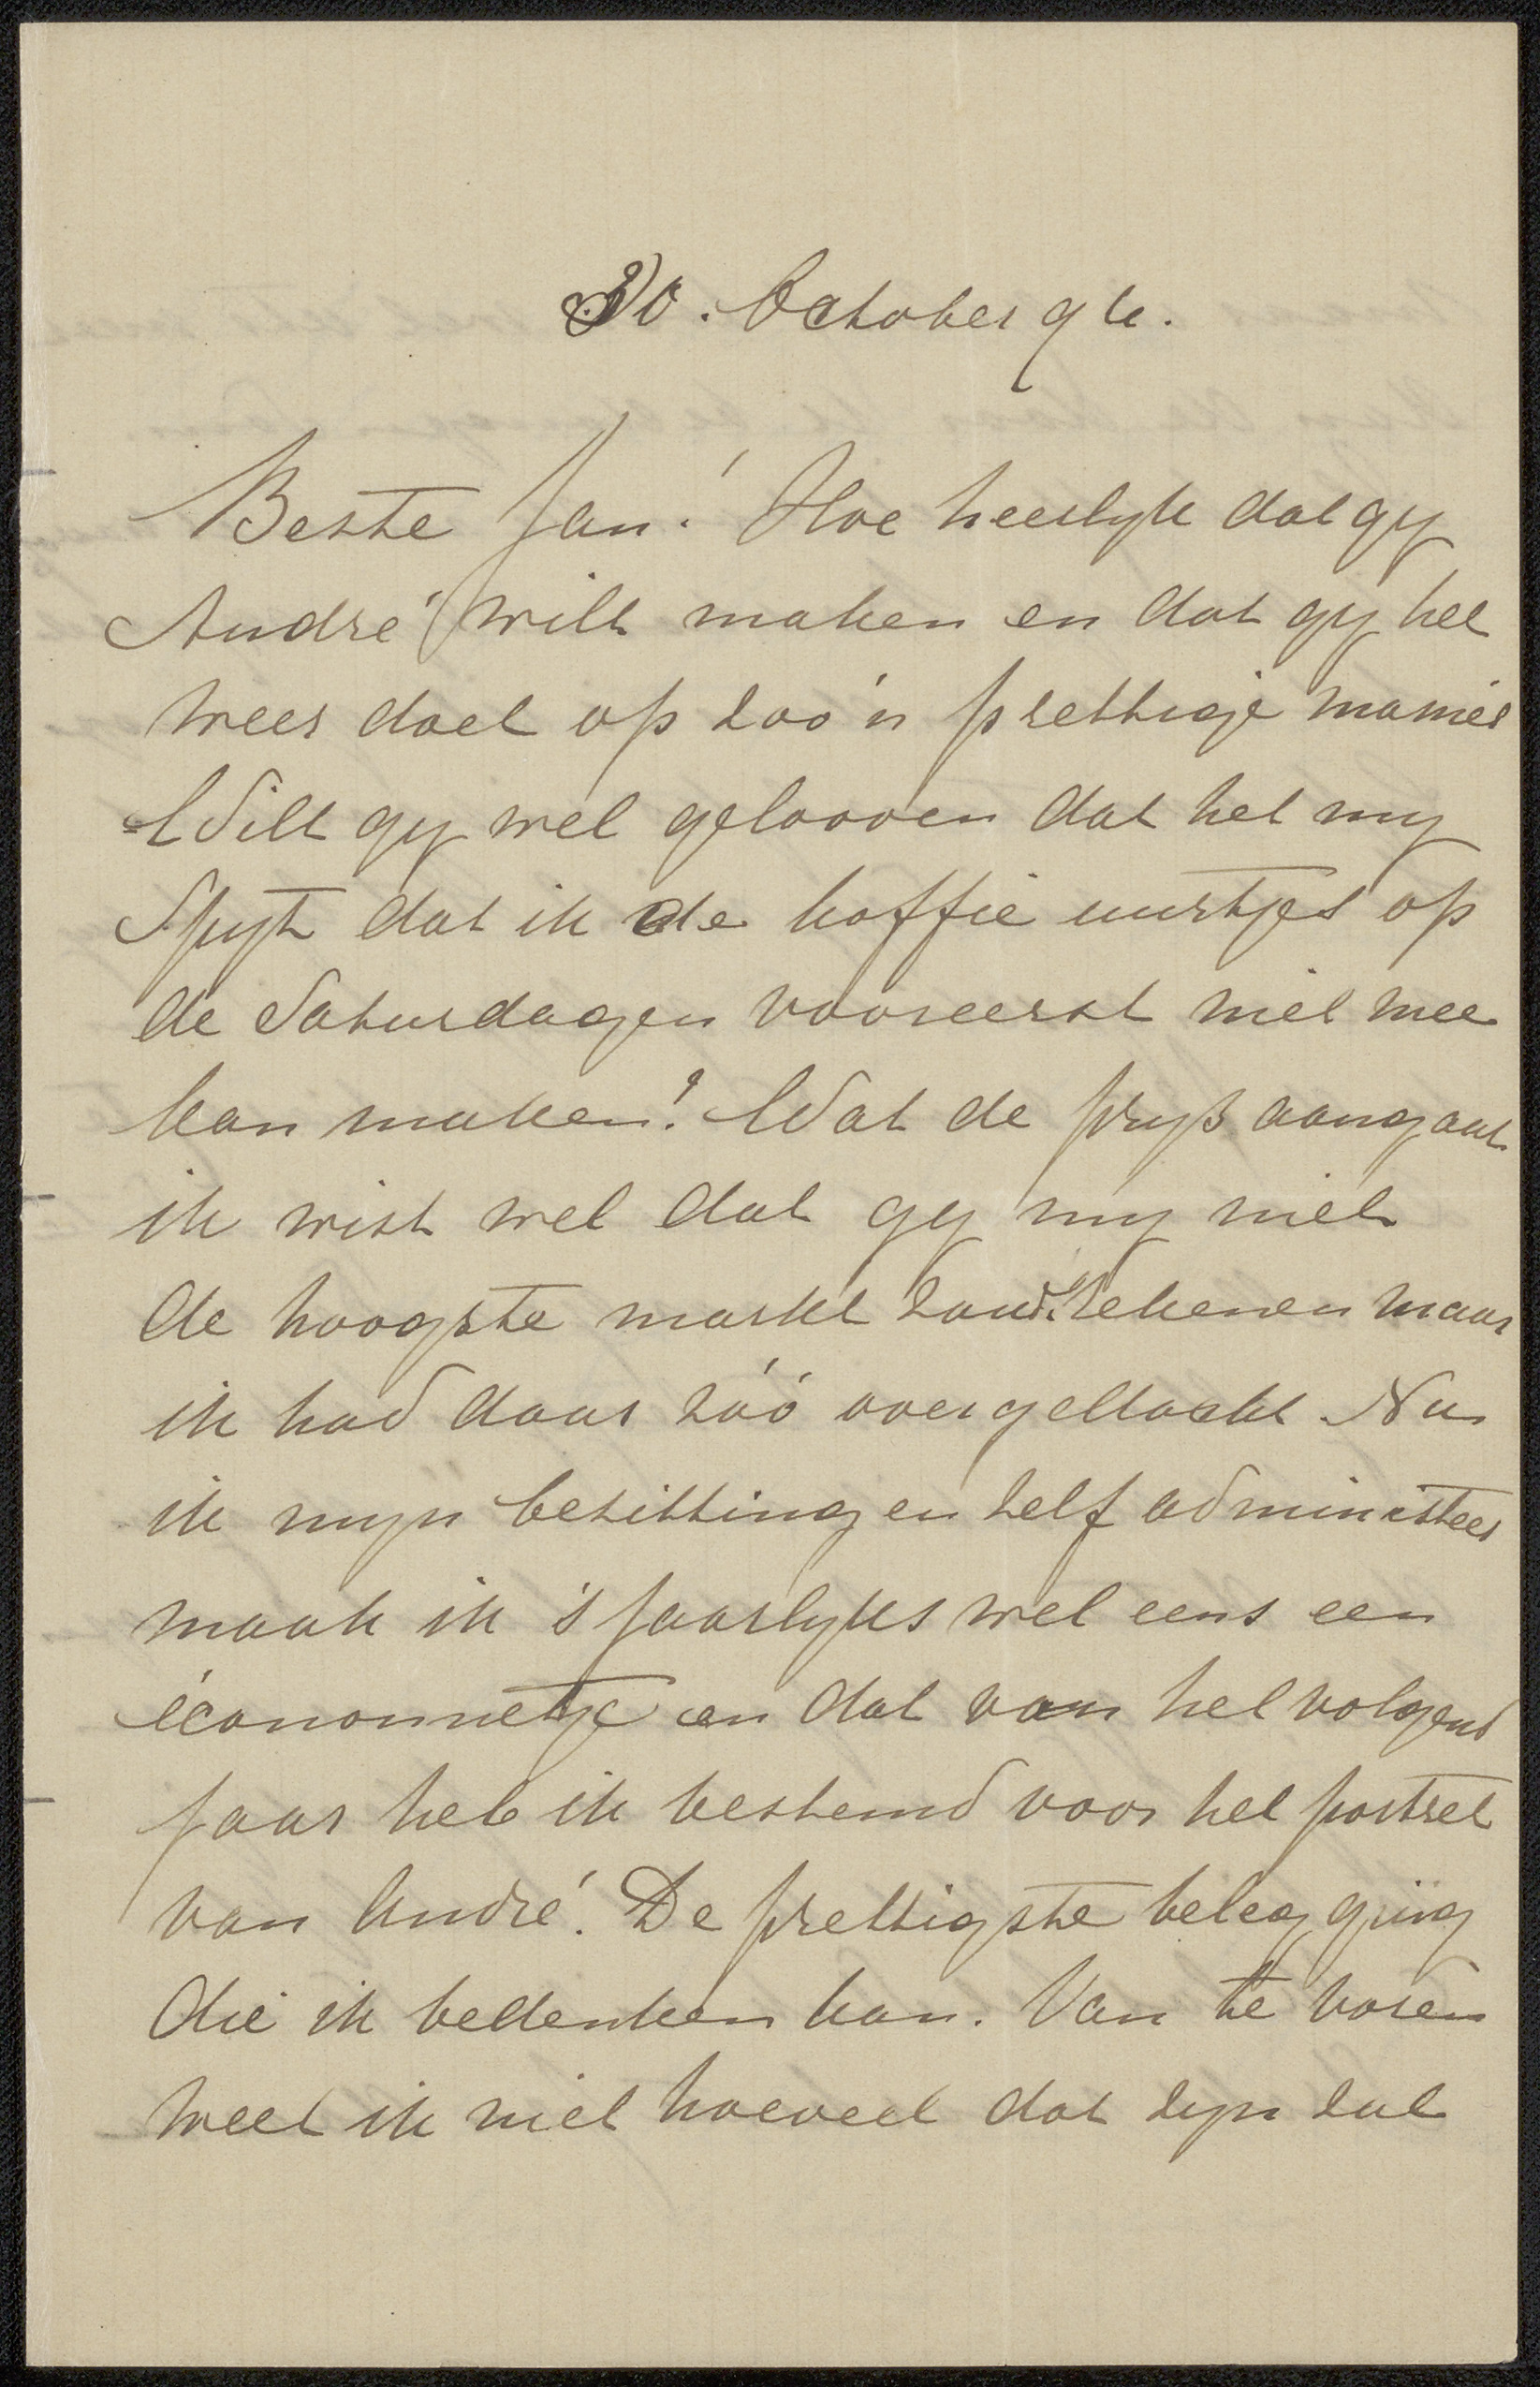 30. October 96.
Beste Jan! Hoe heerlyk dat gy
André wilt maken en dat gy het
weer doet op zoo'n prettige manier
Wilt gy wel gelooven dat het my
Spyt dat ik de koffie uurtjes op
de Saturdagen vooreerst niet mee
kan maken! Wat de prys aangaat
ik wist wel dat gy my niet
de hoogste markt zoud rekenen maar
ik had daar zóó over gedacht Nu
ik myn bezittingen zelf administreer
maak ik 's jaarlyks wel eens een
économetje en dat van het volgend
jaar heb ik bestemd voor het portret
van André. De prettigste belegging
die ik bedenken kan. Van te voren
weet ik niet hoeveel dat zyn zal